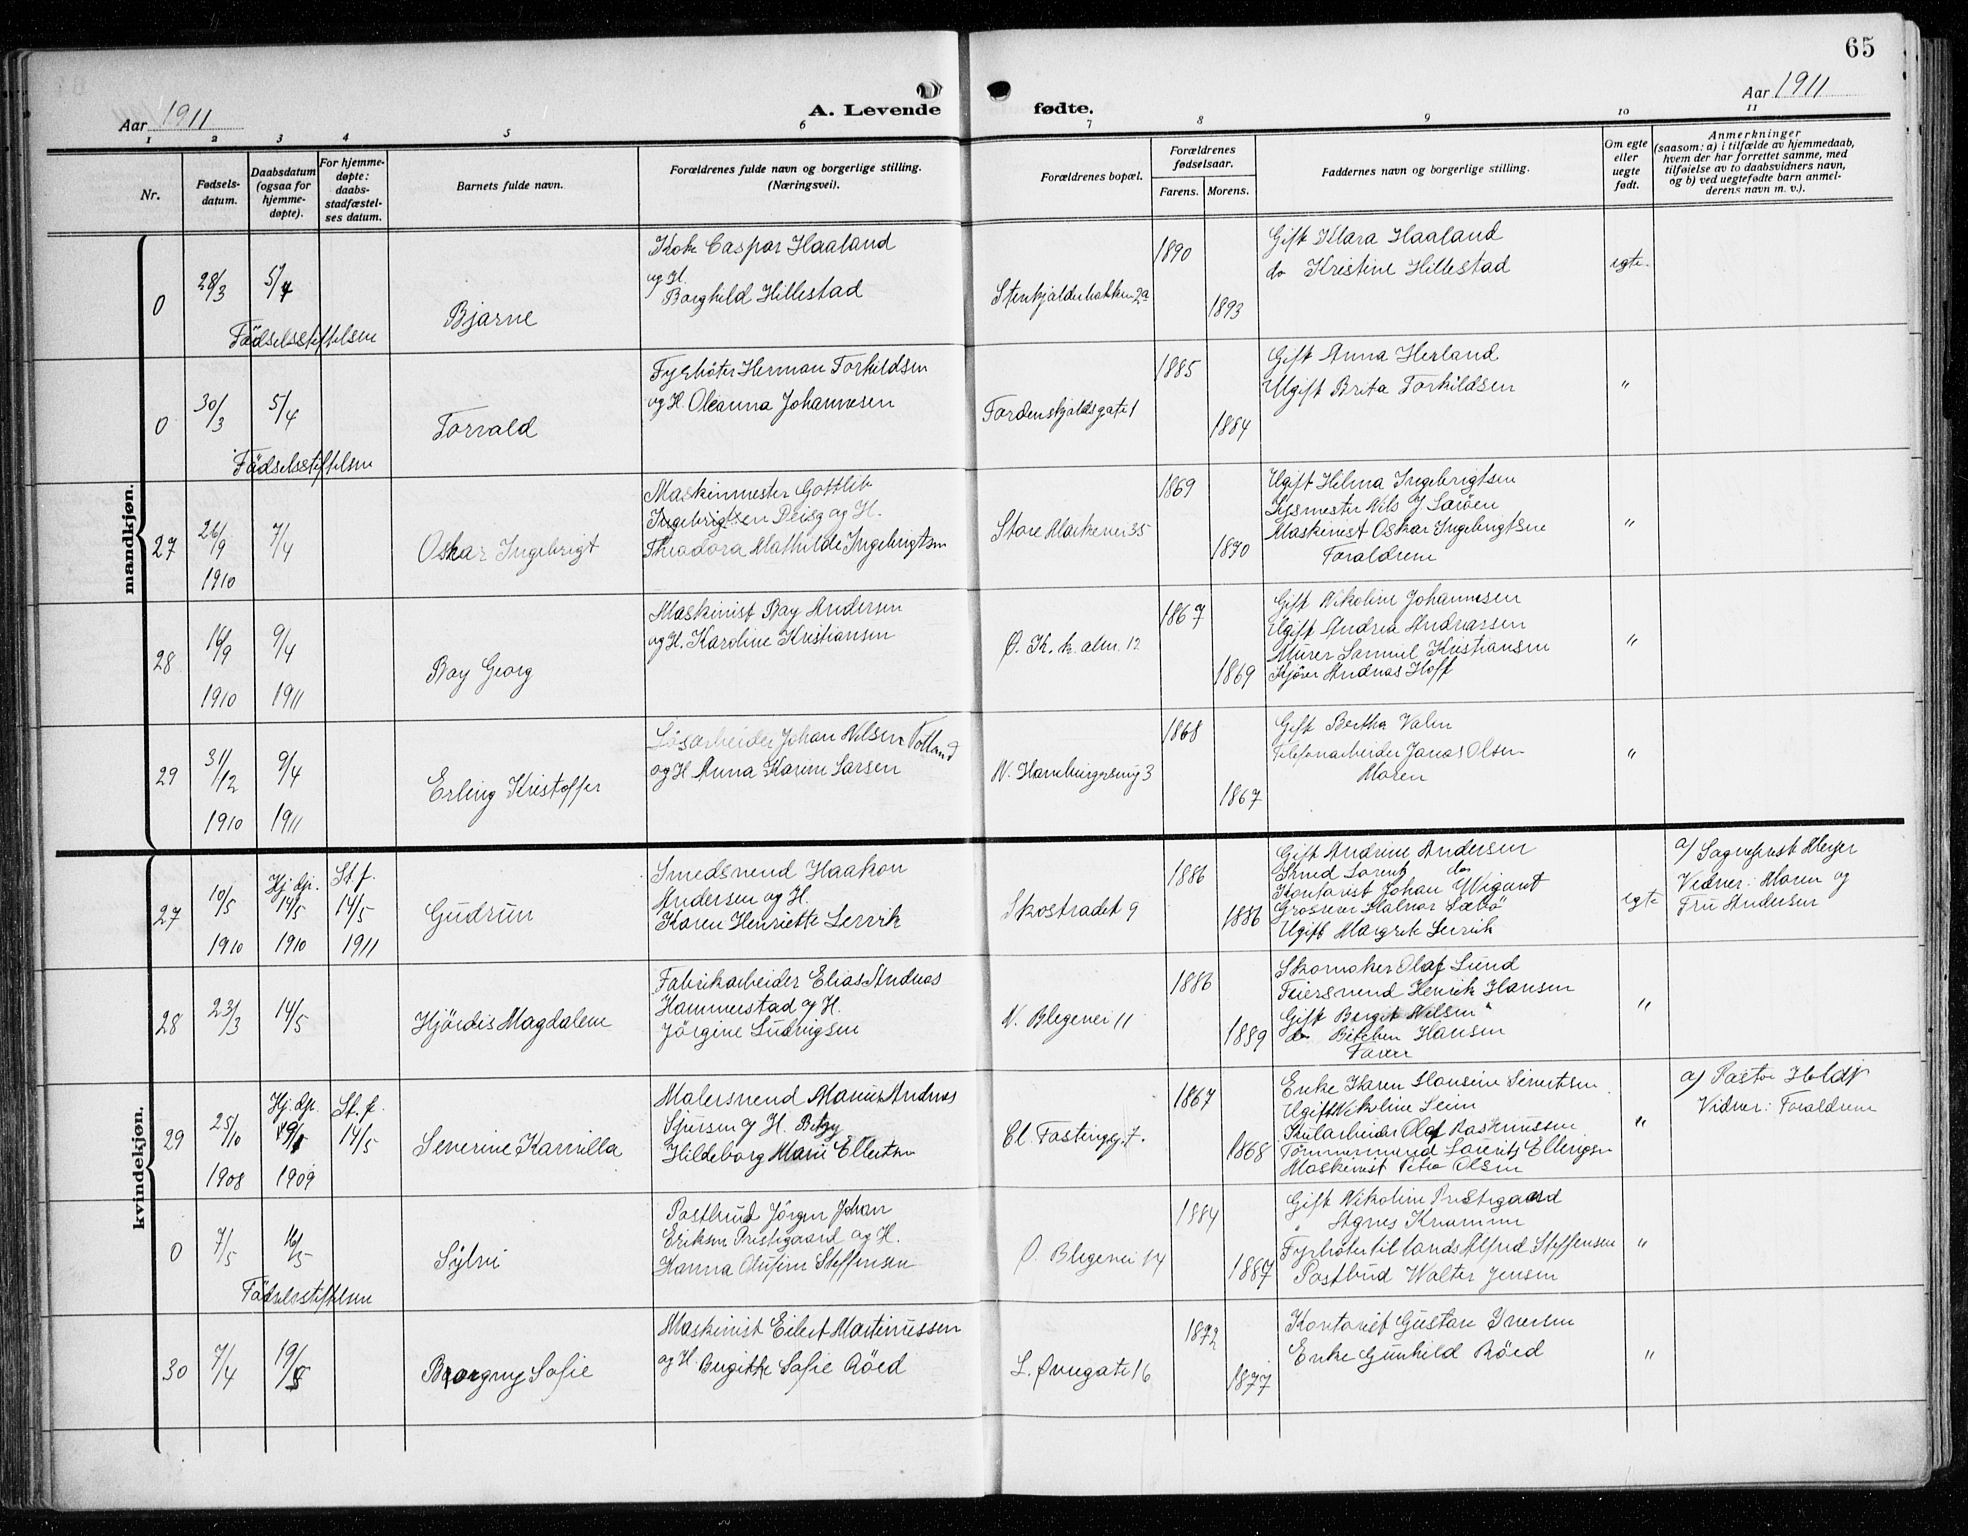 65
Aar 1911
A. Levende fødte.
Aar 1911
1 2 3 4 5 6 7 8 9 10 11
Nr.
Fødsels-
datum.
Daabsdatum
(ogsaa for
hjemme-
døpte).
For hjemme-
døpte:
daabs-
stadfæstel-
ses datum.
Barnets fulde navn.
Forældrenes fulde navn og borgerlige stilling.
(Næringsvei).
Forældrenes bopæl.
Forældrenes
fødselsaar.
Farens. Morens.
Faddernes navn og borgerlige stilling.
Om egte
eller
uegte
født.
Anmerkninger
(saasom: a) i tilfælde av hjemmedaab,
hvem der har forrettet samme, med
tilføielse av to daabsvidners navn,
og b) ved uegtefødte barn anmel-
derens navn m. v.).
mandkjøn.
0
28/3
5/4
Födselsstiftelsen
Bjarne
Kok Caspar Haaland
og H.
Borghild Hillestad
Stenkjelderbakken 2a
1890
1893
Gift Klara Haaland
do Kristine Hillestad
egte
0
30/3
5/4
Födselsstiftelsen
Torvald
Fyrböter Herman Torkildsen
og H. Oleanna Johannesen
Tordenskjoldsgate 1
1885
1884
Gift Anna Herland
Ugift Brita Torkildsen
"
27
26/9
1910
7/4
Oskar Ingebrigt
Maskinmester Gottlib
Ingebrigtsen og H.
Theodora Mathilde Ingebrigtsen
Store Markevei 35
1869
1870
Ugift Helma Ingebrigtsen
Nils
Maskinist Oskar Ingebrigtsne
Foraldrene
"
28
16/9
1910
9/4
1911
Bay Georg
Maskinist Bay Andersen
og H. Karoline Kristiansen
Ø. K. k. alm. 12
1867
1869
Gift Nikoline Johannesen
Ugift Andrea Andreassen
Murer Samuel Kristiansen
Andreas Hoff
"
29
31/12
1910
9/4
1911
Erling Kristoffer
Lösarbeider Johan Nilsen Totland
og H Anna Karine Larsen
N. Hamburgersmug 3
1868
1867
Gift Bertha Valen
Telefonarbeider Jonas Olsen
Moren
"
kvindekjøn.
27
10/5
1910
Hj. dp.
14/5
1910
St. f.
14/5
1911
Gudrun
Smedsvend Haakon
Andersen og H.
Karen Henriette Lervik
Skostrædet 9
1886
1886
Gift Andrine Andersen
Smed Lorentz do
Kontorist Johan Wigant
Ugift Margrete Lervik
egte
a) Sogneprest Meyer
Vidner: Moren og
Fru Andersen
28
23/3
14/5
Hjördis Magdalene
Fabrikarbeider Elias Andreas
Hammerstad og H.
Jörgine Ludvigsen
N. Blegevei 11
1886
1889
Skomaker Olaf Lund
Feiersvend Henrik Hansen
Gift Bergit Nilsen
do Betchen Hansen
Faren
"
29
25/10
1908
Hj. dp.
1909
St. f.
14/5
Severine Kamilla
Malersvend Marius Andreas
og H. Betzy
Hildeborg Marie Ellertsen
Cl. Fastingsg. 7.
1867
1868
Enke Karen Hansine Sivertsen
Ugift Nikoline Seim
Olaf Rasmussen
Tömmermand Laurits Ellingsen
Maskinist Peter Olsen
"
a) Pastor Holdt
Vidner: Foraldrene
0
7/5
16/5
Födselsstiftelsen
Sylvi
Postbud Jörgen Johan
Eriksen Prestegaard og H.
Hanna Olufine Steffensen
Ö. Blegevei 14
1884
1887
Gift Nikoline Prestegaard
" Agnes
Fyrböter til lands Alfred Steffensen
Postbud Walter Jensen
"
30
7/4
19/5
Borgny Sofie
Maskinist Eilert Martinussen
og H. Birgitte Sofie Röed
L. Øvregate 16
1872
1877
Kontorist Gustav Iversen
Enke Gunhild Röed
"